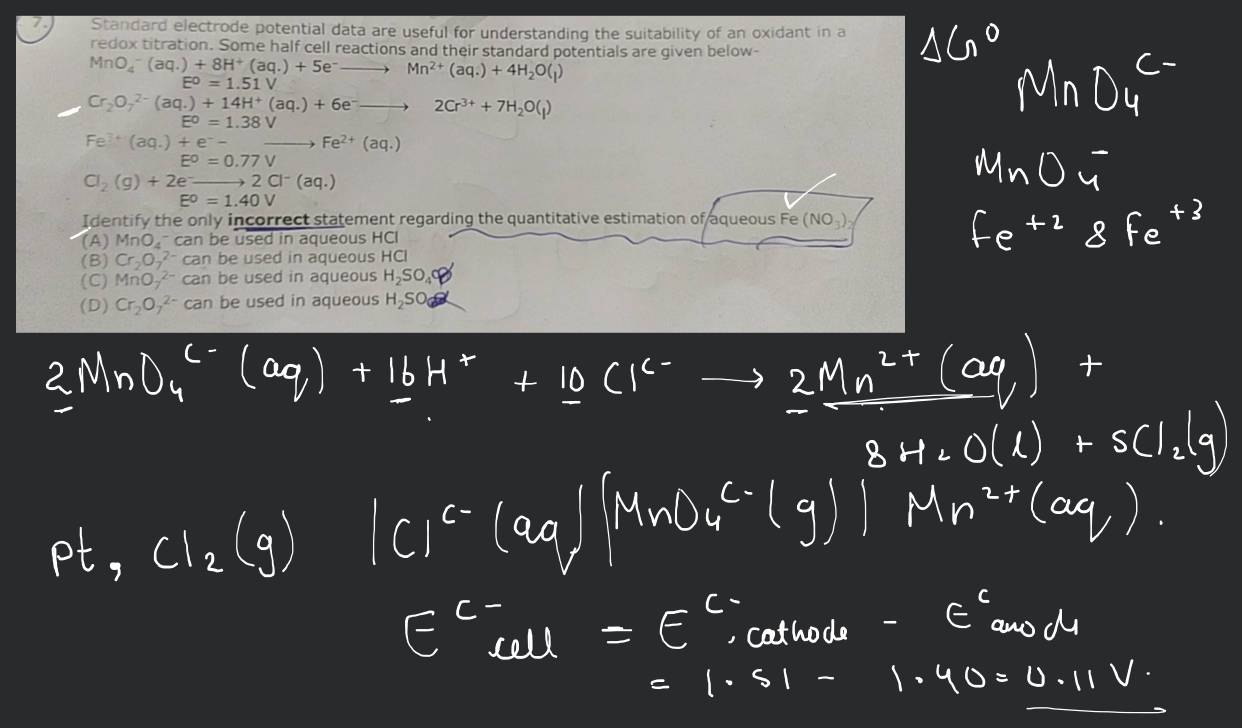 7. Standard electrode potential data are useful for understanding the suitability of an oxidant in a
redox titration. Some half cell reactions and their standard potentials are given below-
MnO₄⁻ (aq.) + 8H⁺ (aq.) + 5e⁻ ⟶ Mn²⁺ (aq.) + 4H₂O(l)
E⁰ = 1.51 V
Cr₂O₇²⁻ (aq.) + 14H⁺ (aq.) + 6e⁻ ⟶ 2Cr³⁺ + 7H₂O(l)
E⁰ = 1.38 V
Fe³⁺ (aq.) + e⁻ - ⟶ Fe²⁺ (aq.)
E⁰ = 0.77 V
Cl₂ (g) + 2e⁻ ⟶ 2 Cl⁻ (aq.)
E⁰ = 1.40 V
Identify the only incorrect statement regarding the quantitative estimation of aqueous Fe (NO₃)₂
(A) MnO₄⁻ can be used in aqueous HCl
(B) Cr₂O₇²⁻ can be used in aqueous HCl
(C) MnO₇²⁻ can be used in aqueous H₂SO₄
(D) Cr₂O₇²⁻ can be used in aqueous H₂SO
ΔG⁰
MnO₄ᶜ⁻
MnO₄⁻
Fe⁺² & Fe⁺³
2MnO₄ᶜ⁻ (aq) + 16H⁺ + 10 Clᶜ⁻ ⟶ 2Mn²⁺ (aq) +
8H₂O(l) + 5Cl₂(g)
pt, Cl₂(g) |Clᶜ⁻ (aq)||MnO₄ᶜ⁻(g)| Mn²⁺(aq).
Eᶜ⁻cell = Eᶜ⁻, cathode - Eᶜ anode
= 1.51 - 1.40 = 0.11 V.